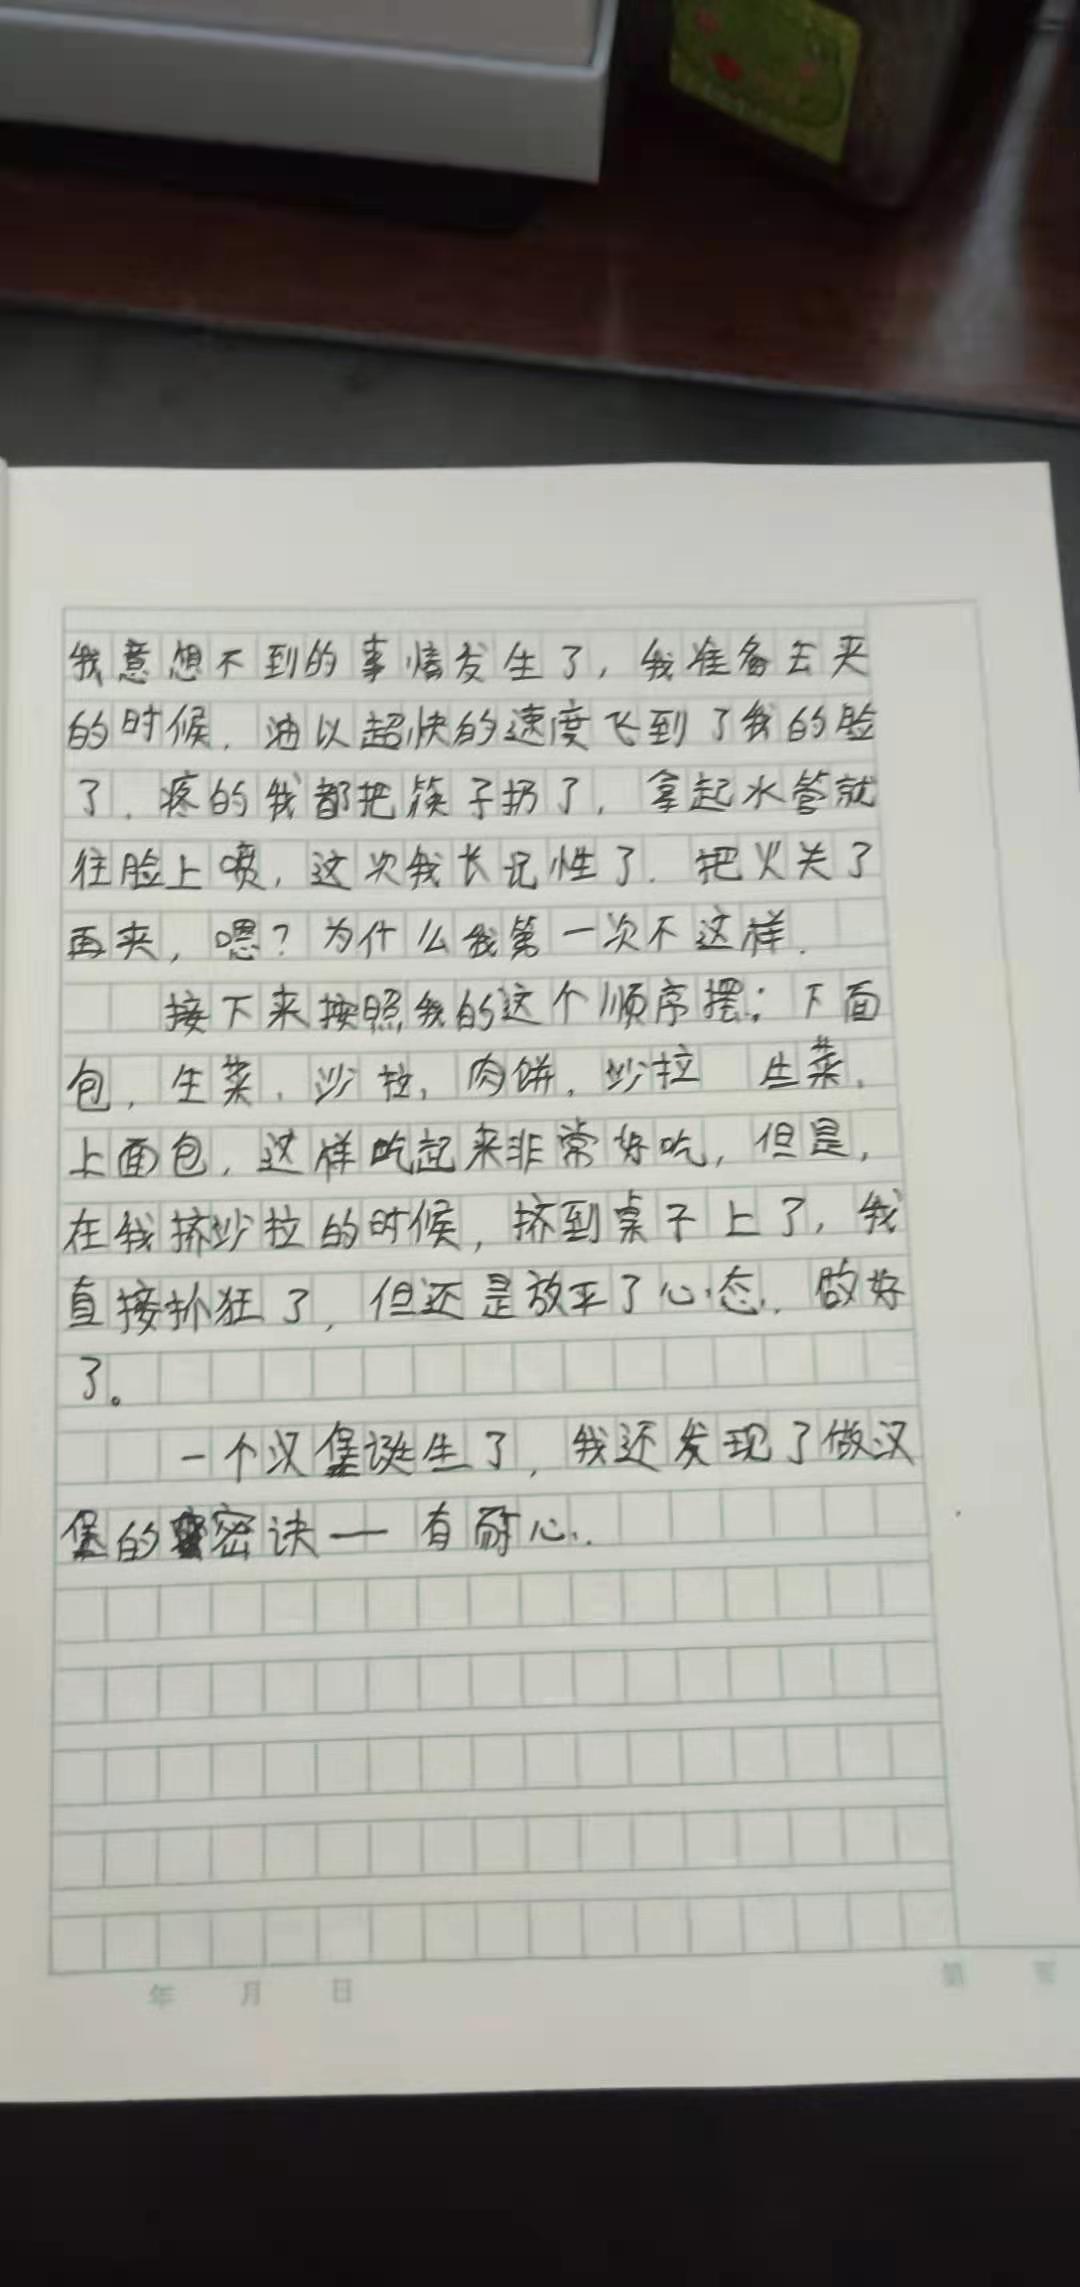 我意想不到的事情发生了，我准备去夹
的时候，油以超快的速度飞到了我的脸
了，疼的我都把筷子扔了，拿起水管就
往脸上喷，这次我长记性了．把火关了
再夹，嗯？为什么我第一次不这样．
接下来按照我的这个顺序摆：下面
包，生菜，沙拉，肉饼，沙拉 生菜，
上面包，这样吃起来非常好吃，但是，
在我挤沙拉的时候，挤到桌子上了，我
直接抓狂了，但还是放平了心态．做好
了。
一个汉堡诞生了，我还发现了做汉
堡的密诀——有耐心．
年 月 日
第 页